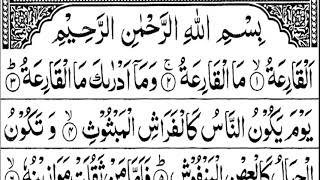 بِسْمِ اللّٰهِ الرَّحْمٰنِ الرَّحِيْمِ
اَلْقَارِعَةُ ۙ﴿۱﴾ مَا الْقَارِعَةُ ۚ﴿۲﴾ وَمَاۤ اَدْرٰىكَ مَا الْقَارِعَةُ ؕ﴿۳﴾
يَوْمَ يَكُوْنُ النَّاسُ كَالْفَرَاشِ الْمَبْثُوْثِ ۙ﴿۴﴾ وَ تَكُوْنُ
الْجِبَالُ كَالْعِهْنِ الْمَنْفُوْشِ ؕ﴿۵﴾ فَاَمَّا مَنْ ثَقُلَتْ مَوَازِيْنُهٗ ۙ﴿۶﴾